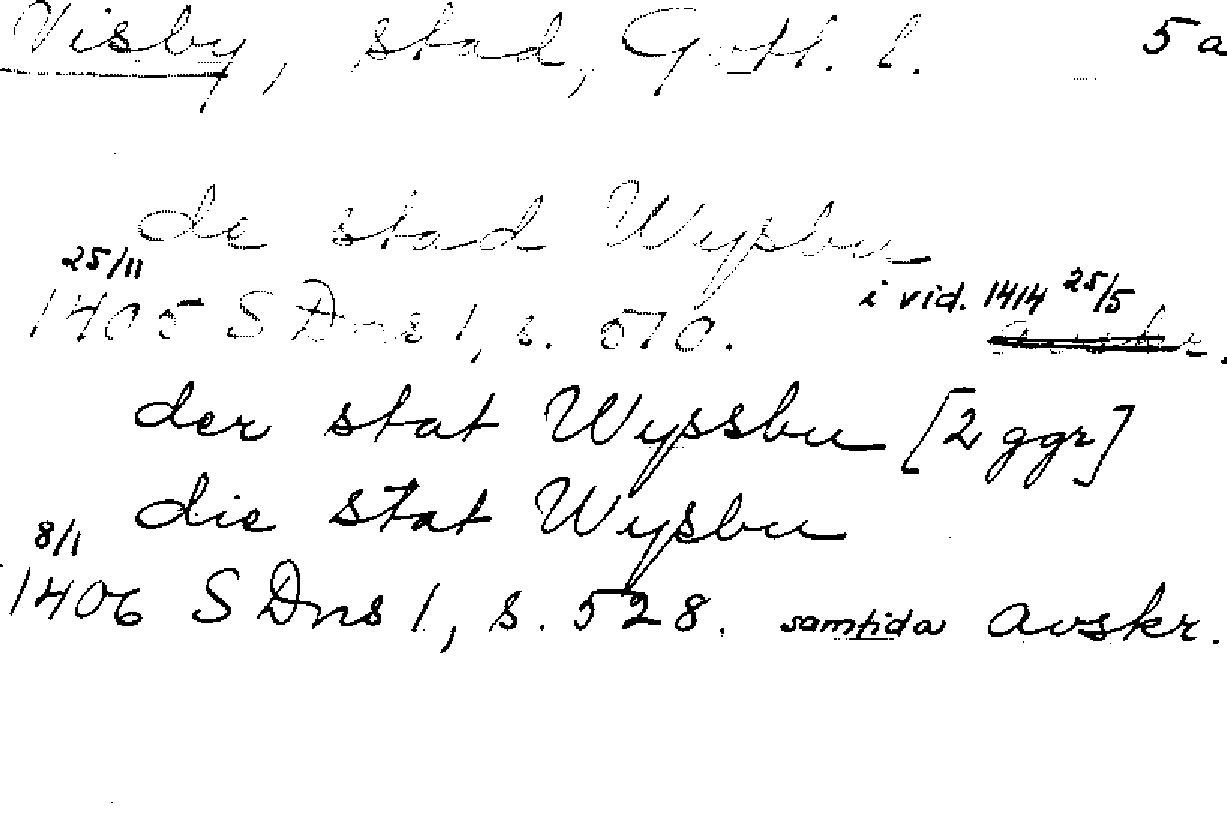 Visby, stad, Gotl. l. 5 a
de stad Wysbu
25/11 i vid. 1414 25/5
1405 SDns 1, s. 510. avskr.
der stat Wyssbu [2 ggr]
die stat Wysbu
8/1
1406 SDns 1, s. 528. samtida avskr.